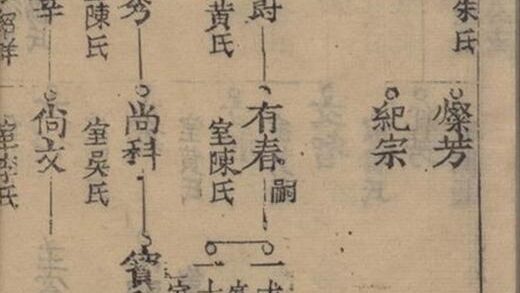 朱氏
燦芳
紀宗
爵
黃氏
有春
嗣
室陳氏
秀
陳氏
尚科
室吳氏
尙文
室李氏